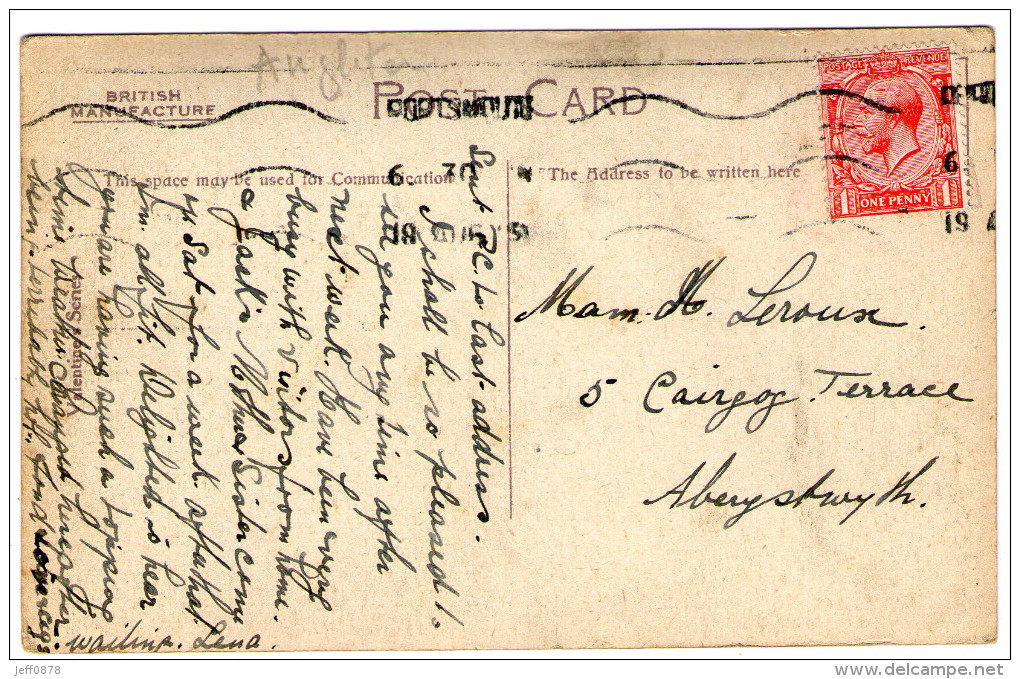 Angleterre
BRITISH
MANUFACTURE
POST CARD
PORTSMOUTH
6 30 M
18 AUG
POSTAGE REVENUE
ONE PENNY
1 1
6
19
This space may be used for Communication
"The Address to be written here
Valentine's Series
Sent P.C. to last address.
I shall be so pleased to
see you any time after
next week. Have been very
busy with visitors from home.
& Jack's Mother & Sister come
up Sat. for a week after that
I'm all bit. Delighted to hear
you are having such a topping
time. Weather changed here after
being terribly hot. Fond love
waiting. Lena.
Mam. H. Leroux.
5 Cairgog Terrace
Aberystwyth.
jeff0878
www.delcampe.net